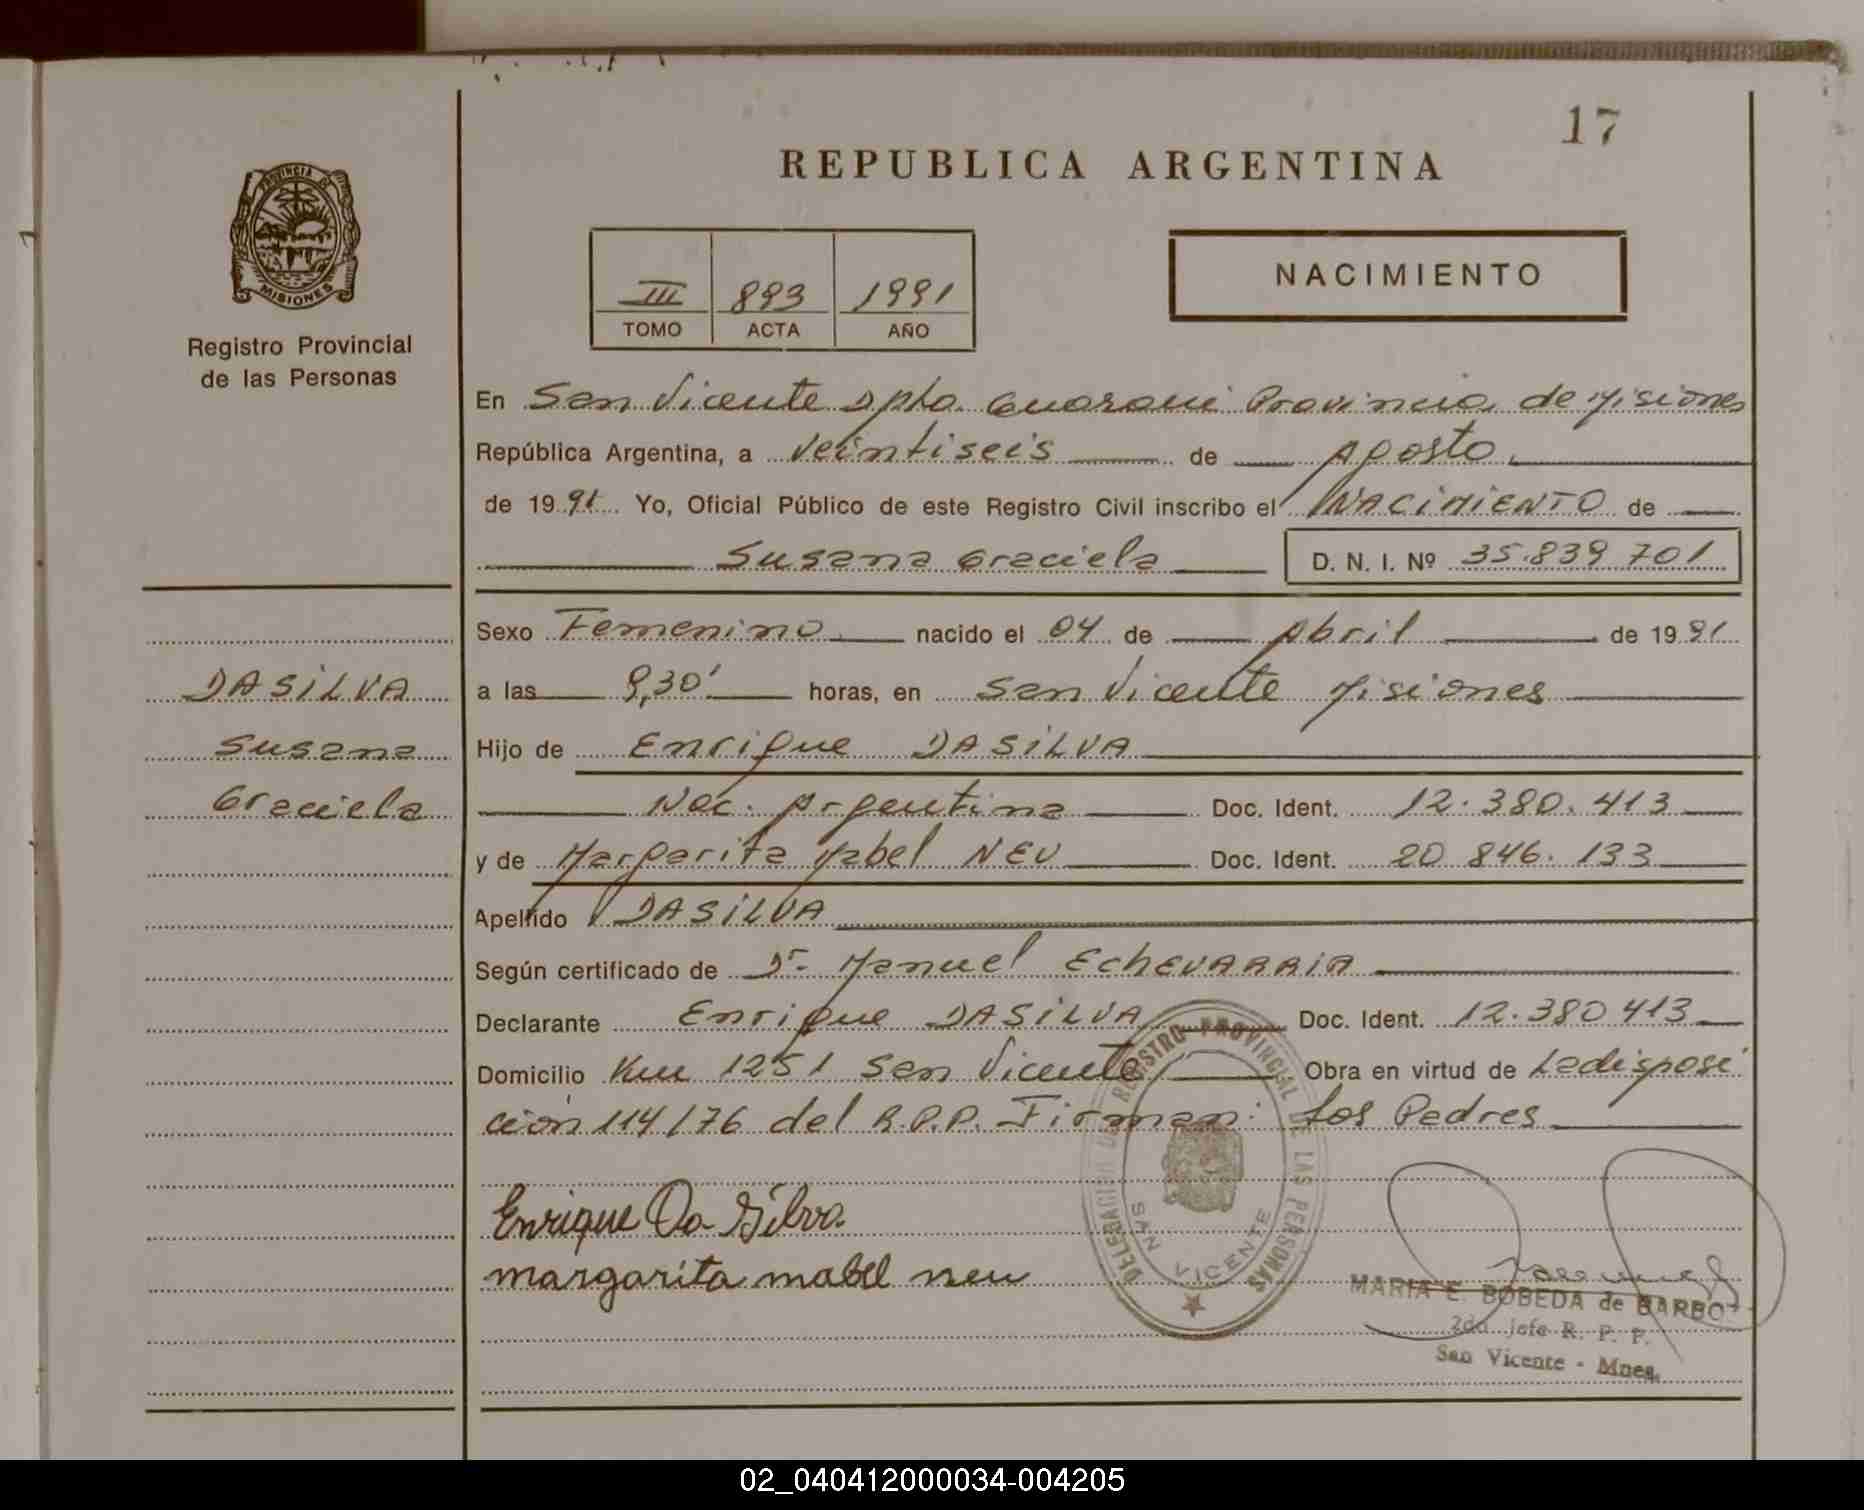 17
REPUBLICA ARGENTINA
PROVINCIA DE
MISIONES
Registro Provincial
de las Personas
III 893 1991
TOMO ACTA AÑO
NACIMIENTO
En San Vicente Dpto. Guarani Provincia de Misiones
República Argentina, a veintiseis de Agosto
de 1991 Yo, Oficial Público de este Registro Civil inscribo el NACIMIENTO de
Susana Graciela D. N. I. Nº 35.839 701
Sexo Femenino nacido el 04 de Abril de 1991
DASILVA
Susana
Graciela
a las 9,30' horas, en San Vicente Misiones
Hijo de Enrique DASILVA
Nac. Argentina Doc. Ident. 12.380.413
y de Margarita Mabel NEU Doc. Ident. 20 846.133
Apellido DASILVA
Según certificado de Dr. Manuel ECHEVARRIA
Declarante Enrique DASILVA Doc. Ident. 12.380 413
Domicilio Km 1251 San Vicente Obra en virtud de Ladisposi
ción 114/76 del R.P.P. Firman: Los Padres
Enrique Da Silva
margarita mabel neu
DELEGACION DEL REGISTRO PROVINCIAL DE LAS PERSONAS
SAN VICENTE
MARIA E. BOBEDA de BARBO
2do Jefe R. P. P.
San Vicente - Mnes.
02_040412000034-004205